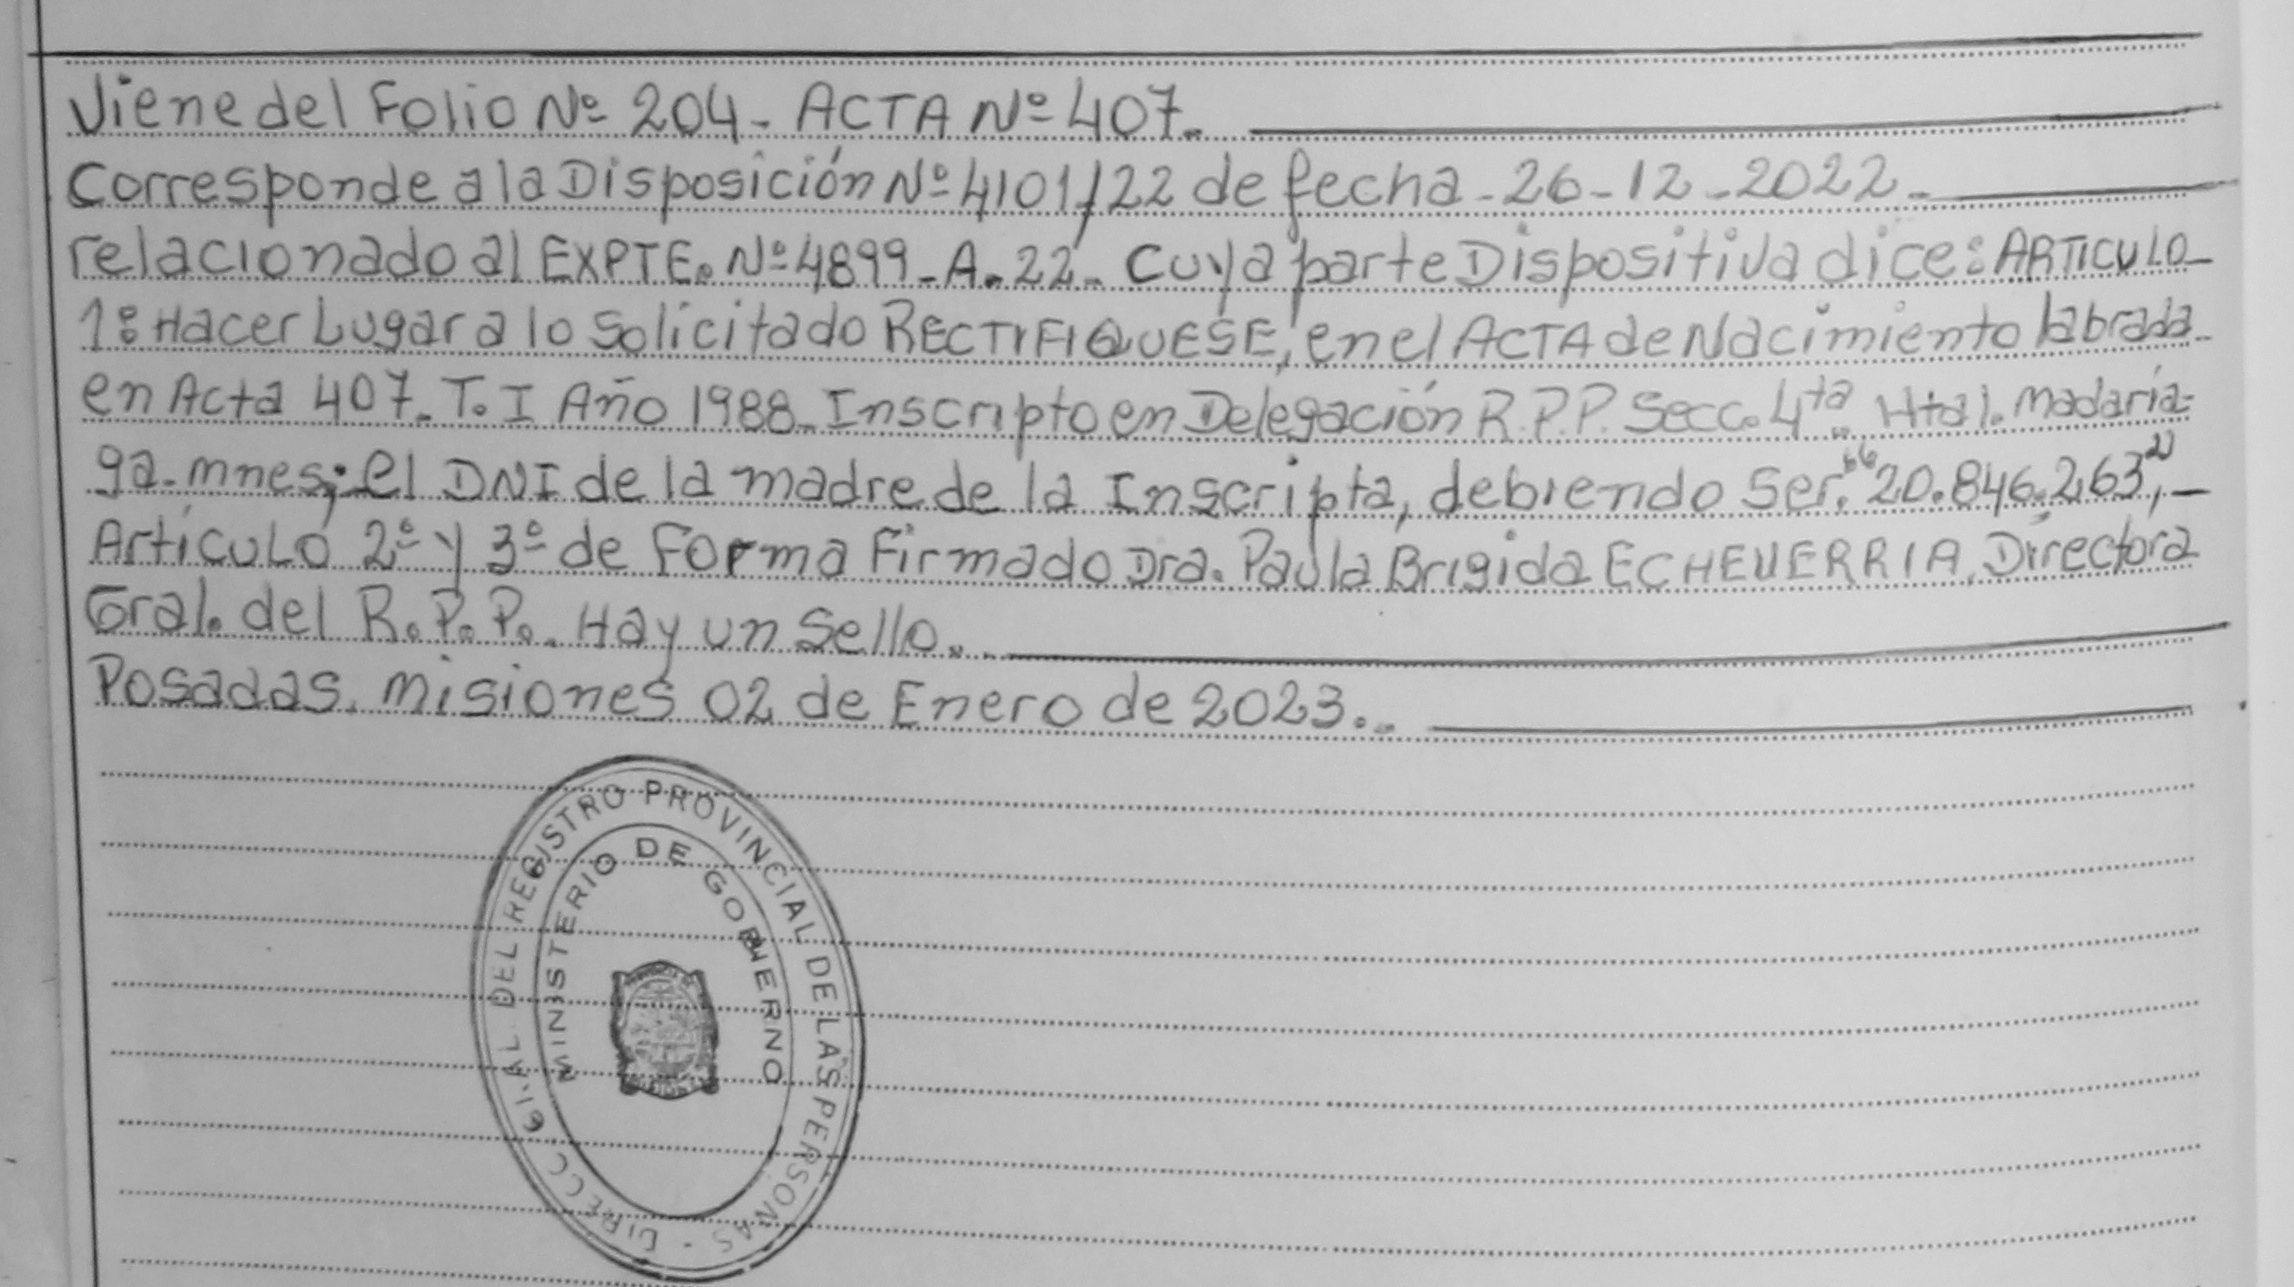 Viene del Folio Nº 204 - ACTA Nº 407.
Corresponde a la Disposición Nº 4101/22 de fecha - 26 - 12 - 2022 -
relacionado al EXPTE. Nº 4899 - A. 22 - Cuya parte Dispositiva dice: ARTICULO -
1º: Hacer Lugar a lo Solicitado RECTIFIQUESE, en el ACTA de Nacimiento labrada -
en Acta 407. T. I Año 1988 - Inscripto en Delegación R.P.P. Secc. 4ta. Htal. Madaria-
ga - mnes; el DNI de la madre de la Inscripta, debiendo Ser: "20.846.263", -
Artículo 2º y 3º de Forma Firmado Dra. Paula Brigida ECHEVERRIA, Directora
Gral. del R.P.P. Hay un Sello.
Posadas, Misiones 02 de Enero de 2023. -
DIRECC GRAL DEL REGISTRO PROVINCIAL DE LAS PERSONAS -
MINISTERIO DE GOBIERNO